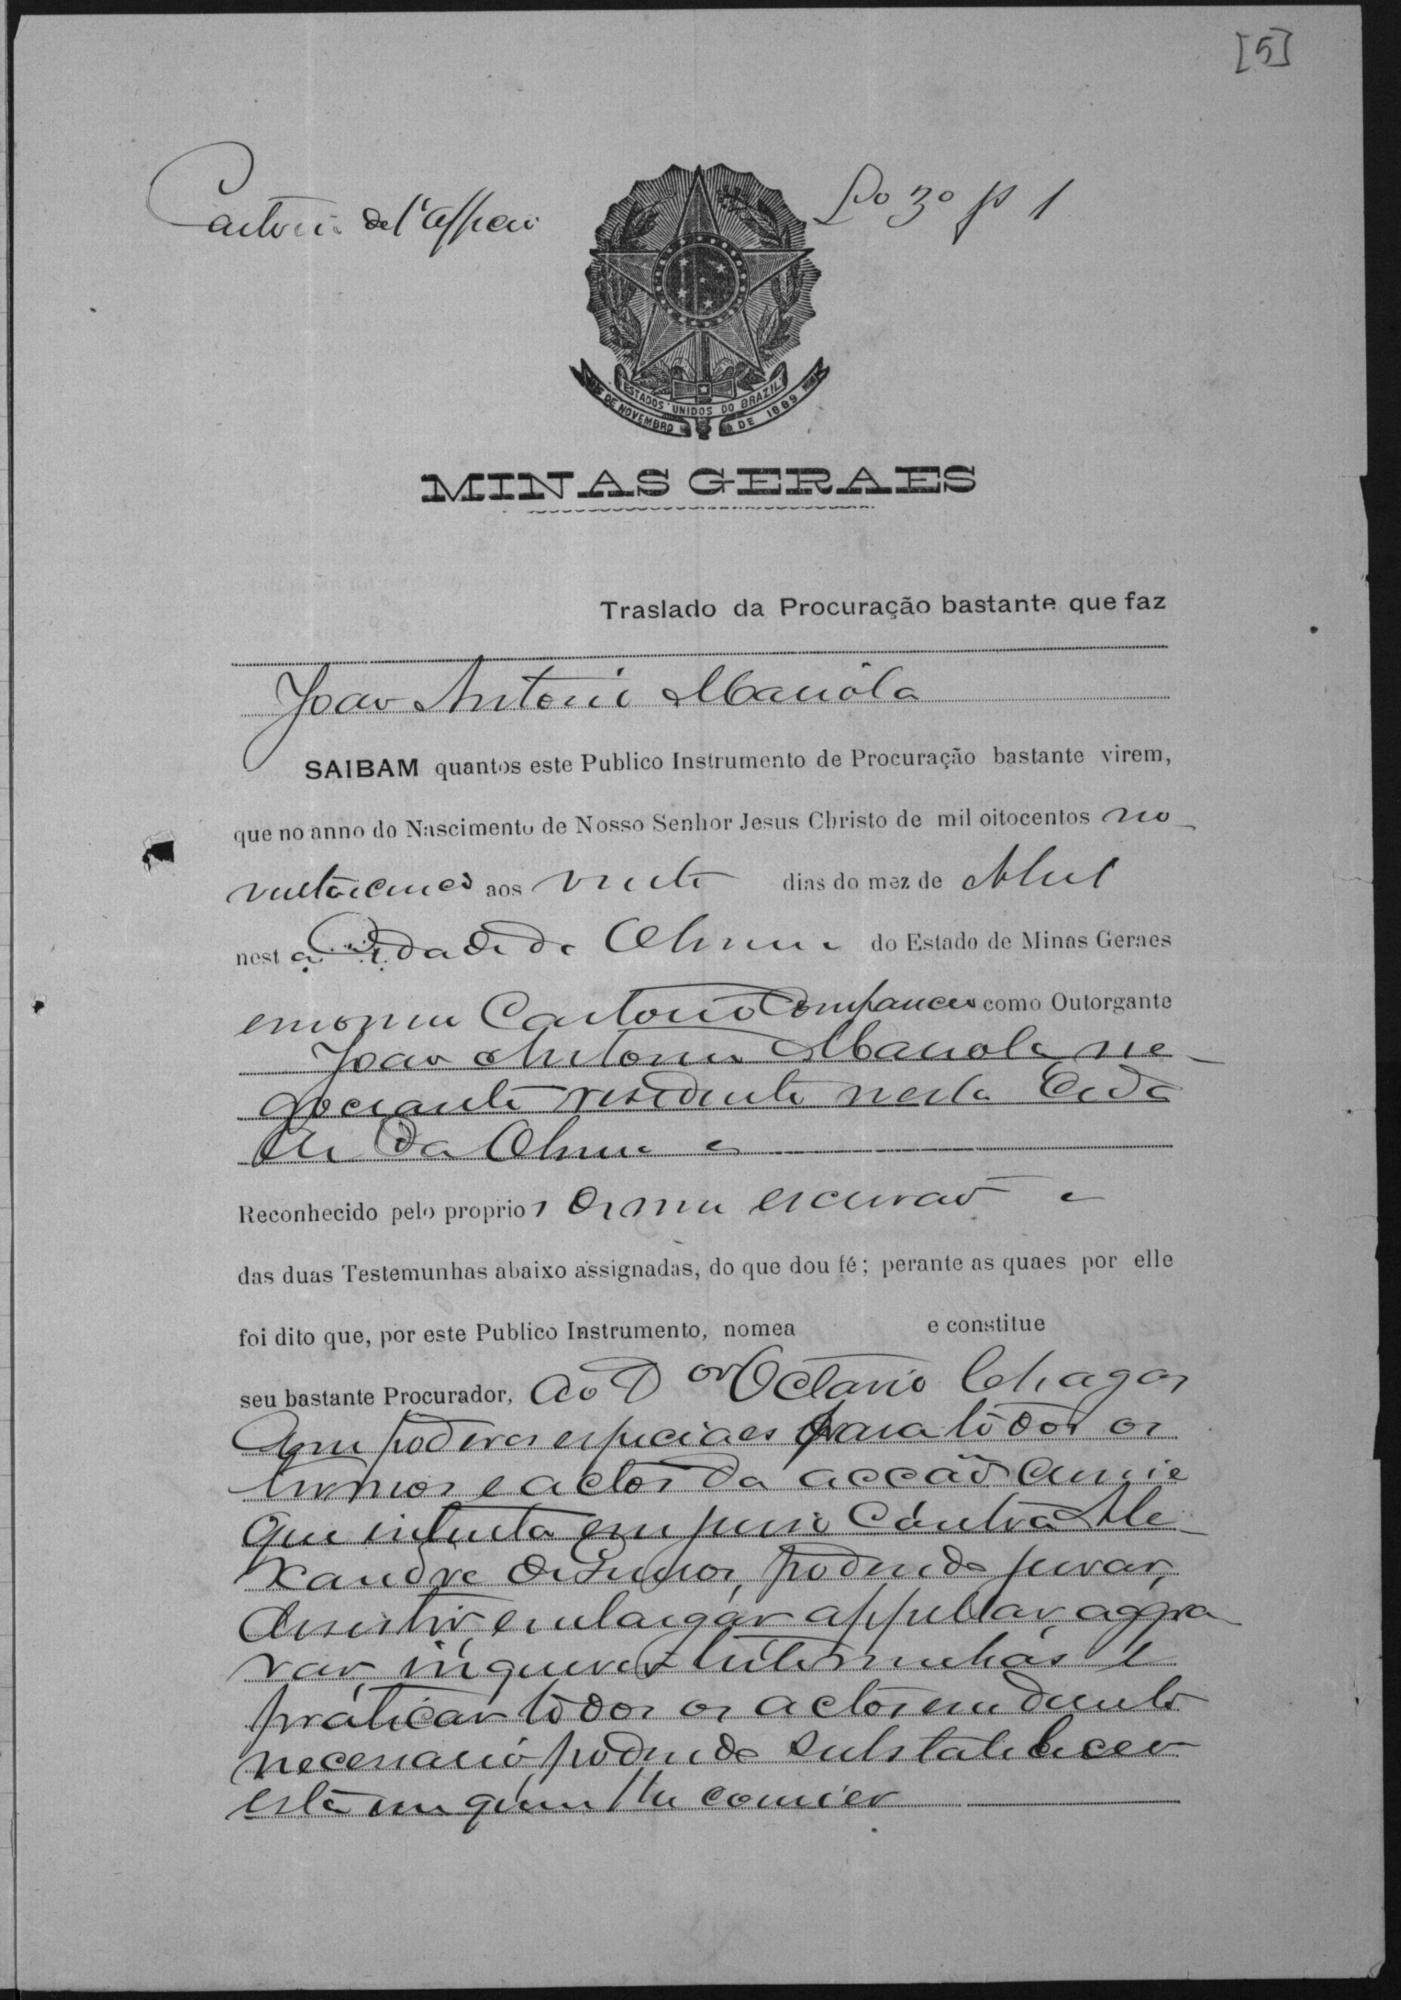 [5]
Cartorio do 1º Officio
Lº 3º fl 1
ESTADOS UNIDOS DO BRAZIL
15 DE NOVEMBRO DE 1889
MINAS GERAES
Traslado da Procuração bastante que faz
João Antonio
SAIBAM quantos este Publico Instrumento de Procuração bastante virem,
que no anno do Nascimento de Nosso Senhor Jesus Christo de mil oitocentos no
venta e cinco aos vinte dias do mez de Abril
nest a Cidade do do Estado de Minas Geraes
em o meu Cartorio Compareceu como Outorgante
João Antonio ne
gociante residente nesta Cida
de
Reconhecido pelo proprio de mim escrivão e
das duas Testemunhas abaixo assignadas, do que dou fé; perante as quaes por elle
foi dito que, por este Publico Instrumento, nomea e constitue
seu bastante Procurador, ao Dor Octavio Chagas
Com poderes especiaes para todos os
termos e actos da acção
que intenta em juiso Contra Ale
xandre de Lemos, podendo jurar,
desistir, embargar appellar, aggra
var, inquerir testemunhas e
praticar todos os actos em direito
necessario, podendo substabelecer
esta em quem lhe convier